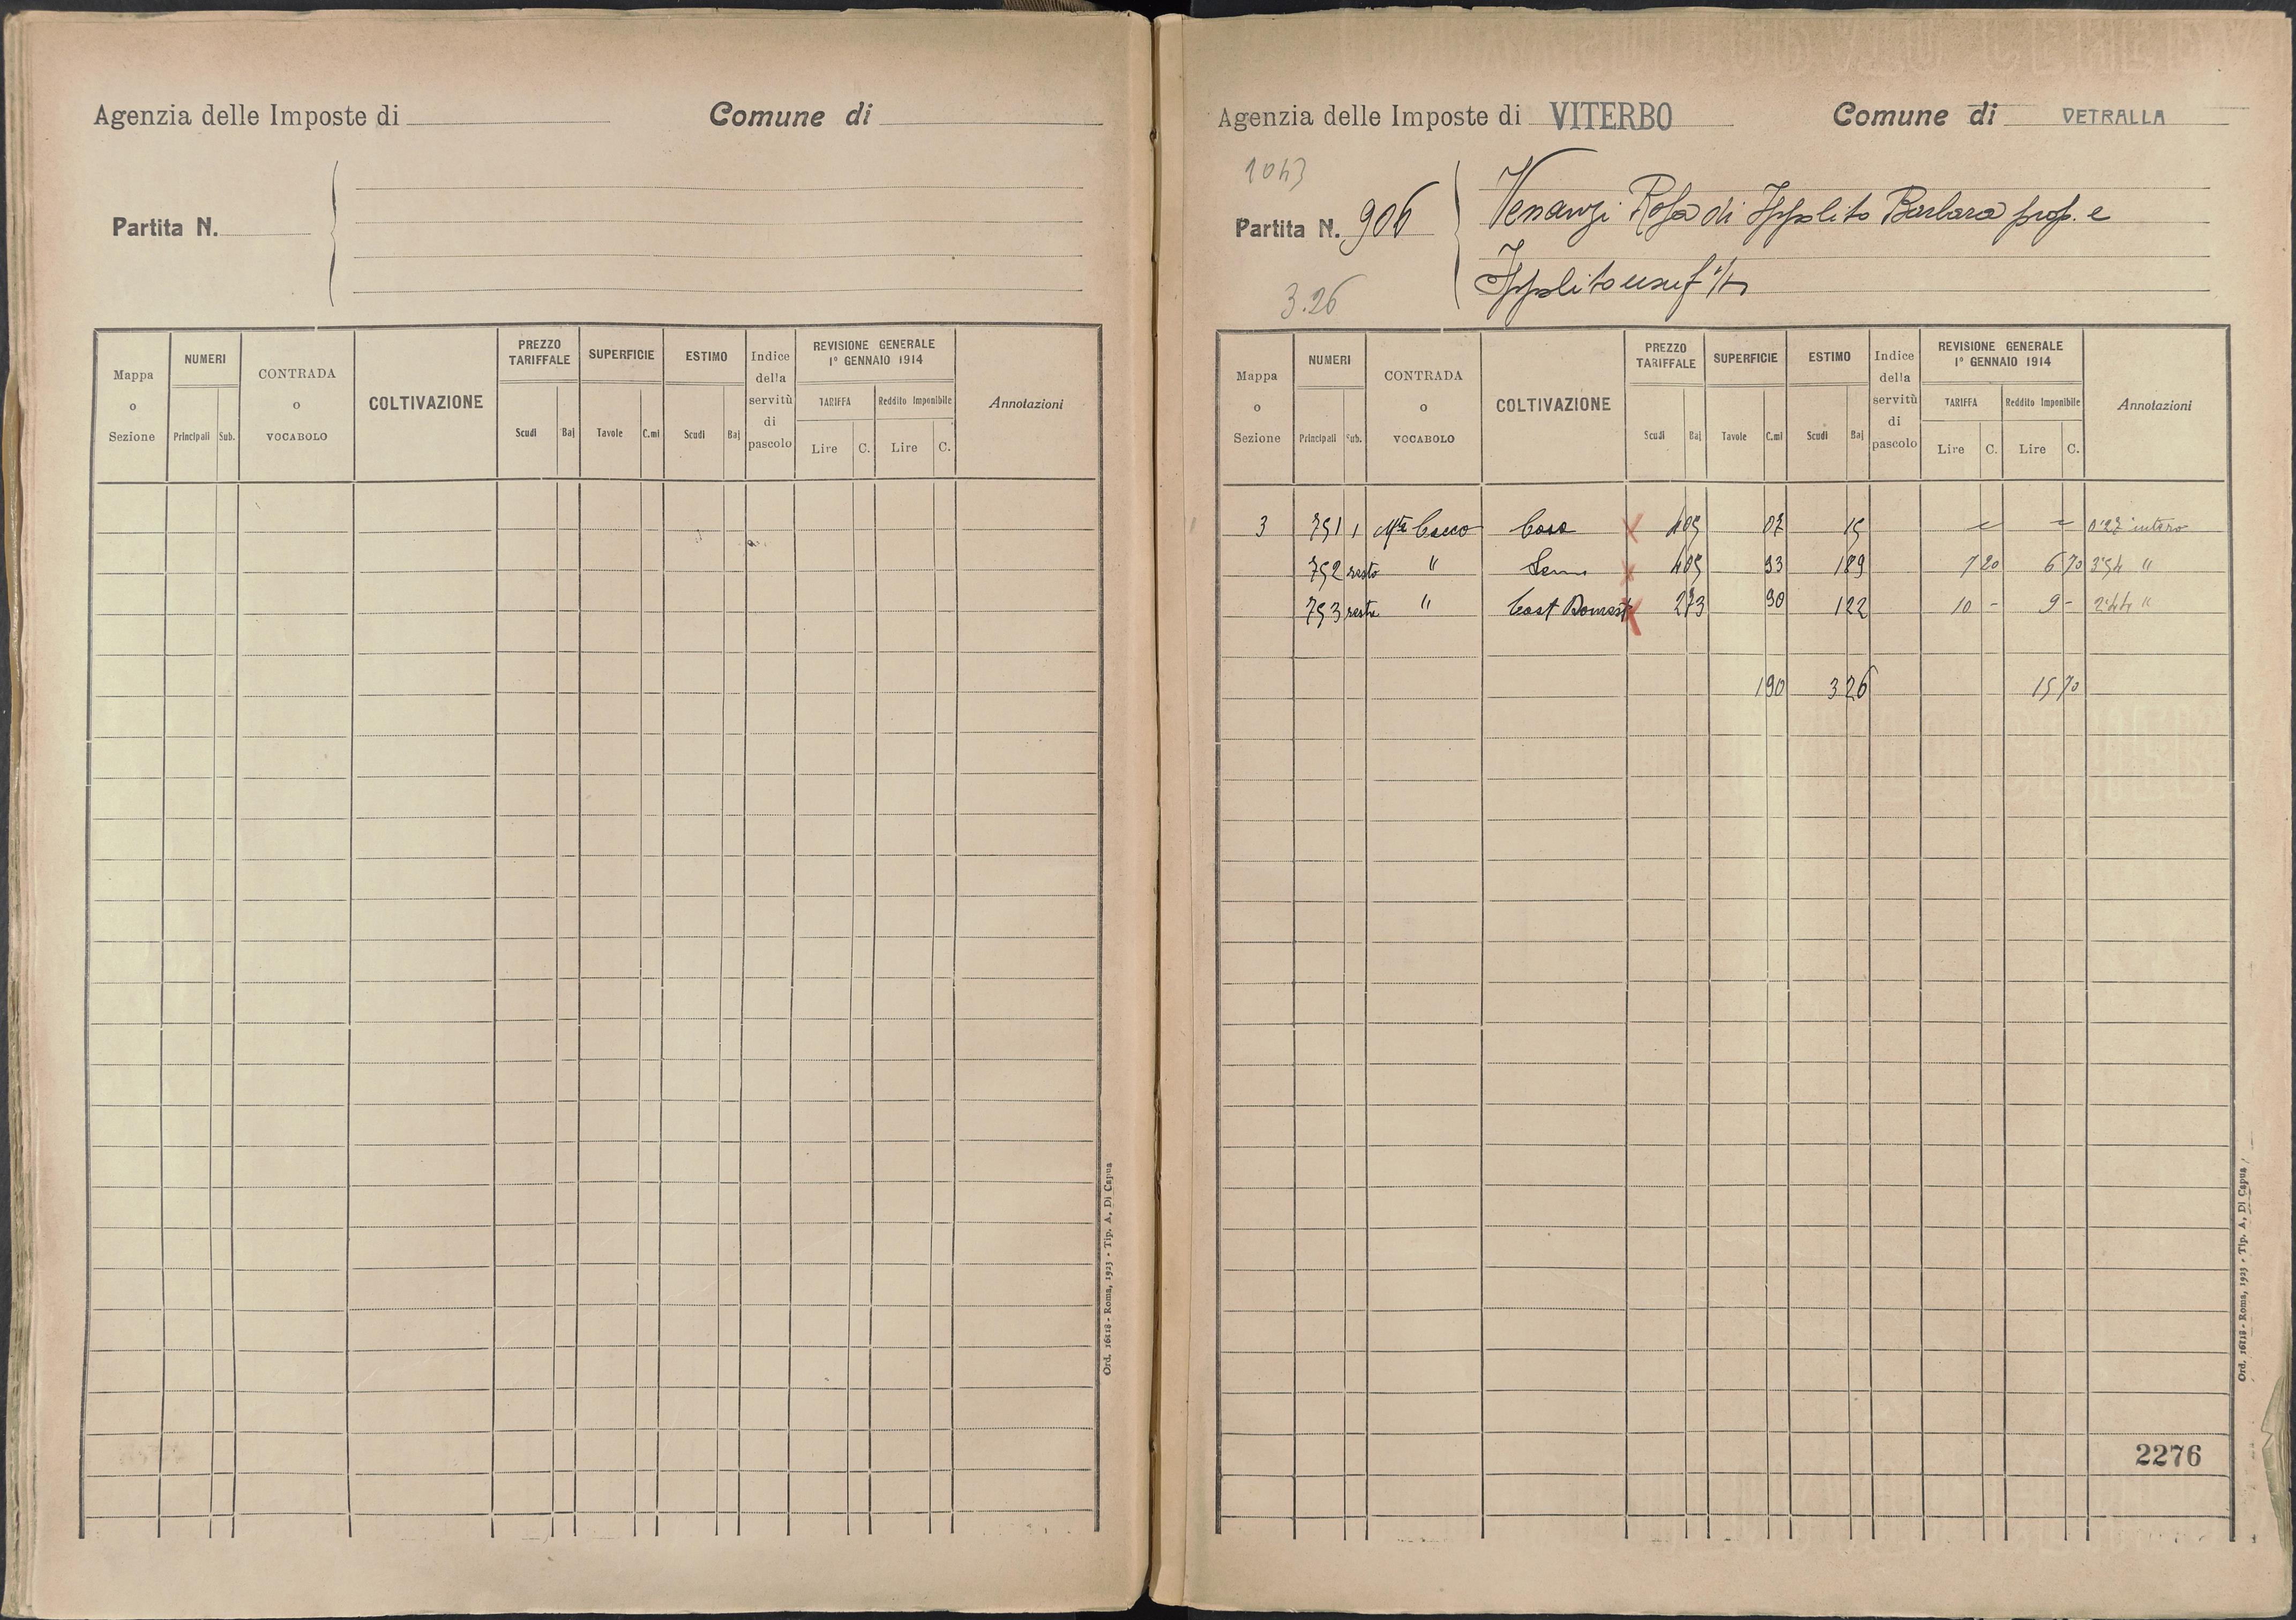 Agenzia delle Imposte di
Comune di
Partita N.
Mappa o Sezione
NUMERI
Principali Sub.
CONTRADA o VOCABOLO
COLTIVAZIONE
PREZZO TARIFFALE
Scudi Baj
SUPERFICIE
Tavole C.mi
ESTIMO
Scudi Baj
Indice della servitù di pascolo
REVISIONE GENERALE
1º GENNAIO 1914
TARIFFA Reddito Imponibile
Lire C. Lire C.
Annotazioni
Ord. 16118 - Roma, 1923 - Tip. A. Di Capua
Agenzia delle Imposte di VITERBO
Comune di VETRALLA
1043
Partita N. 906
3.26
Venanzi Rosa di Ippolito Barbara prop. e
Ippolito usuf
Mappa o Sezione
NUMERI
Principali Sub.
CONTRADA o VOCABOLO
COLTIVAZIONE
PREZZO TARIFFALE
Scudi Baj
SUPERFICIE
Tavole C.mi
ESTIMO
Scudi Baj
Indice della servitù di pascolo
REVISIONE GENERALE
1º GENNAIO 1914
TARIFFA Reddito Imponibile
Lire C. Lire C.
Annotazioni
3 751 1 Mte Cocco Casa 405 07 15 0.27 intero
752 resto " Sem 405 93 189 7 20 6 70 3.54 "
753 resto " Cast Domest 273 90 122 10 - 9 - 2.44 "
190 326 15 70
2276
Ord. 16118 - Roma, 1923 - Tip. A. Di Capua